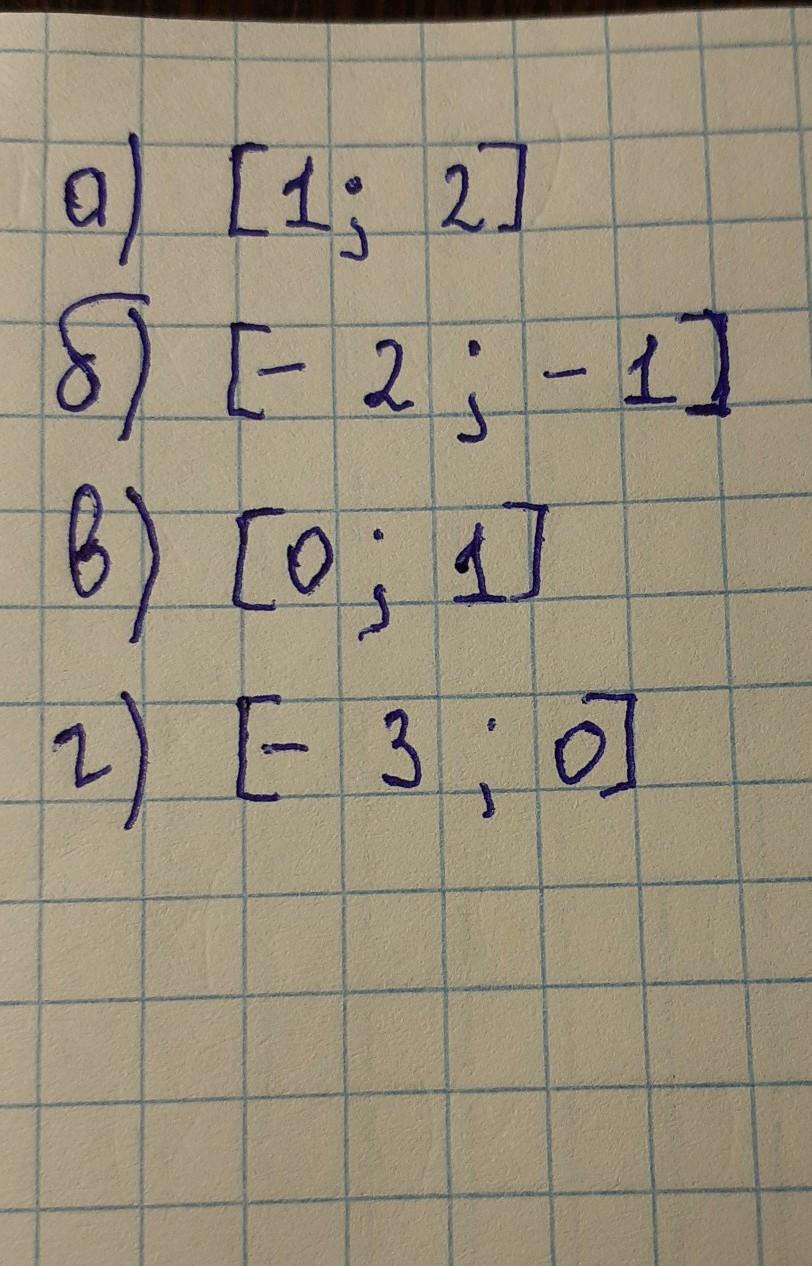 а) [1; 2]
б) [- 2 ; - 1]
в) [0 ; 1]
г) [- 3 ; 0]